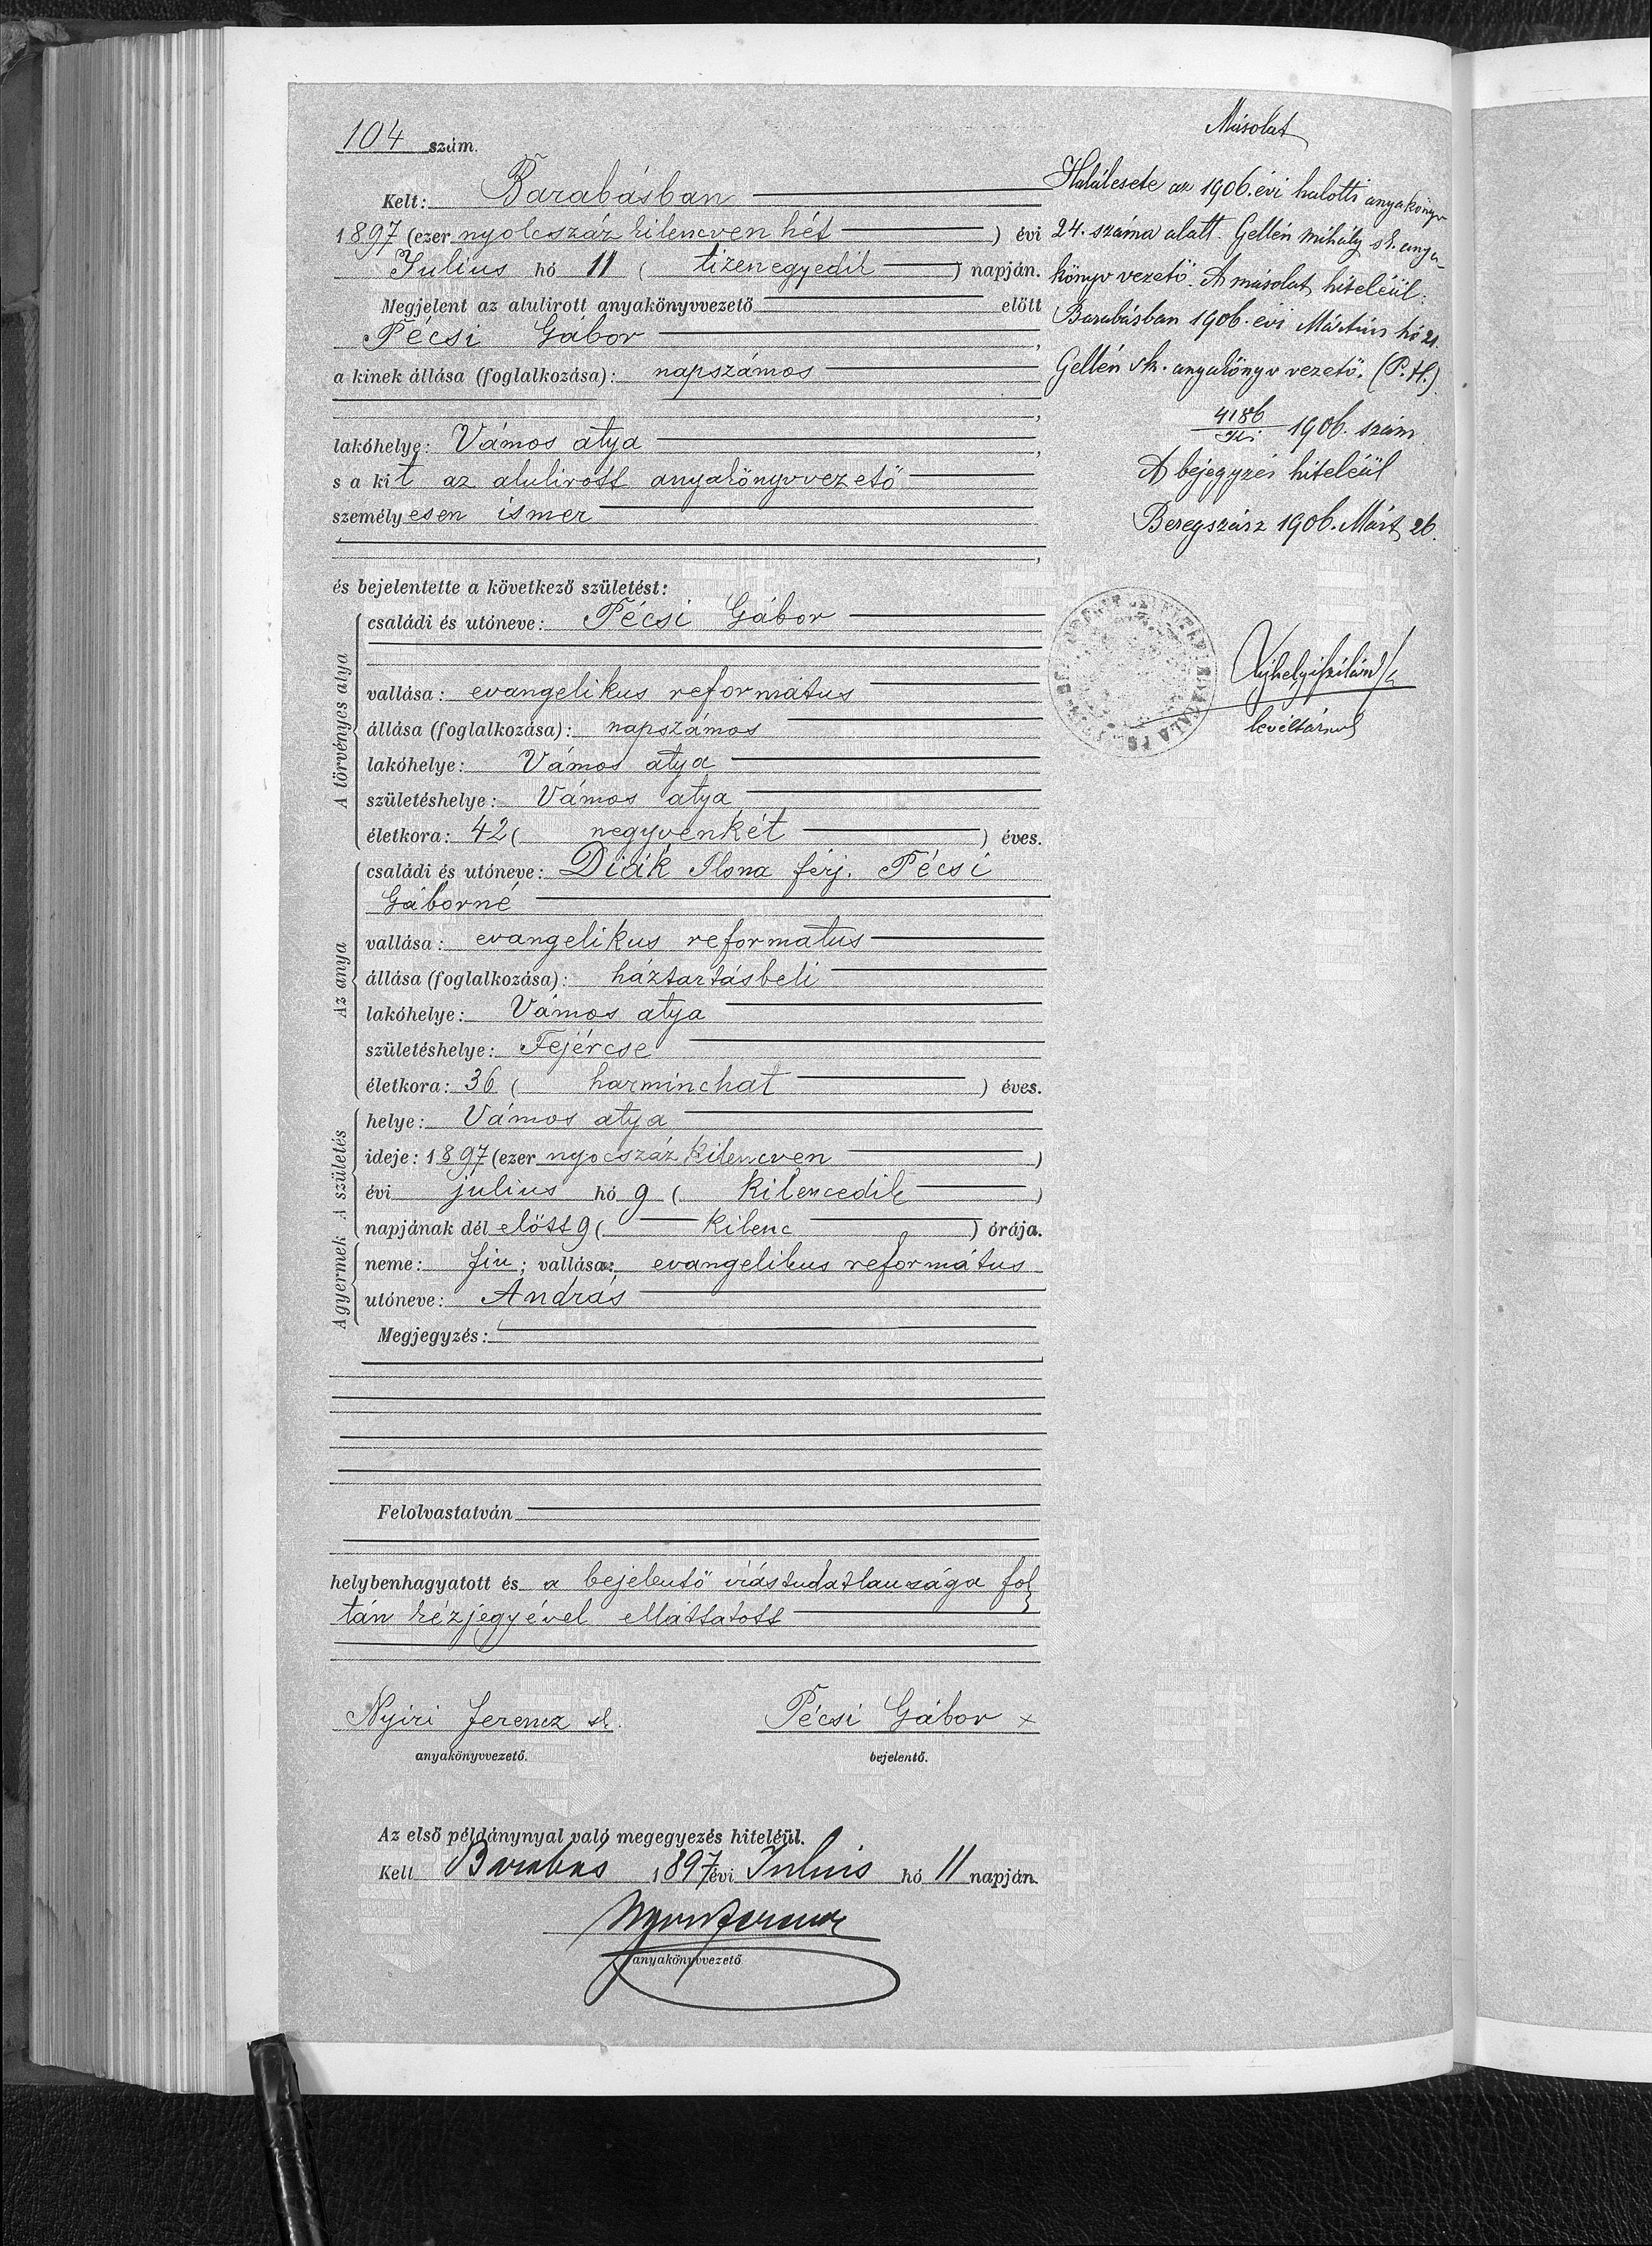 104 szám.
Kelt: Barabásban
1897 (ezer nyolcszáz kilencven hét) évi
Julius hó 11 (tizenegyedik) napján.
Megjelent az alulirott anyakönyvvezető előtt
Pécsi Gábor,
a kinek állása (foglalkozása): napszámos
lakóhelye: Vámos atya,
s a kit az alulirott anyakönyvvezető
személyesen ismer
és bejelentette a következő születést:
A törvényes atya
családi és utóneve: Pécsi Gábor
vallása: evangelikus református
állása (foglalkozása): napszámos
lakóhelye: Vámos atya
születéshelye: Vámos atya
életkora: 42 (negyvenkét) éves.
Az anya
családi és utóneve: Diák Ilona férj. Pécsi
Gáborné
vallása: evangelikus reformatus
állása (foglalkozása): háztartásbeli
lakóhelye: Vámos atya
születéshelye: Fejércse
életkora: 36 (harminchat) éves.
A születés
helye: Vámos atya
ideje: 1897 (ezer nyocszáz kilencven)
évi julius hó 9 (kilencedik)
napjának dél előtt 9 (kilenc) órája.
A gyermek
neme: fiu; vallása: evangelikus református
utóneve: András
Megjegyzés:
Felolvastatván
helybenhagyatott és a bejelentő irástudatlansága foly
tán kézjegyével elláttatott
Nyiri Ferencz sk. Pécsi Gábor x
anyakönyvvezető. bejelentő.
Az első példánynyal való megegyezés hiteléül.
Kelt Barabás 1897 évi Julius hó 11 napján.
Nyiri Ferencz
anyakönyvvezető
Másolat
Halálesete az 1906. évi halotti anyakönyv
24. száma alatt. Gellén Mihály sk. anya-
könyv vezető. A másolat hiteléül:
Barabásban 1906. évi Mártius hó 21.
Gellén sk. anyakönyv vezető. (P. H.)
4186 1906. szám.
A bejegyzés hiteléül
Beregszász 1906. Márt 26.
levéltárnok